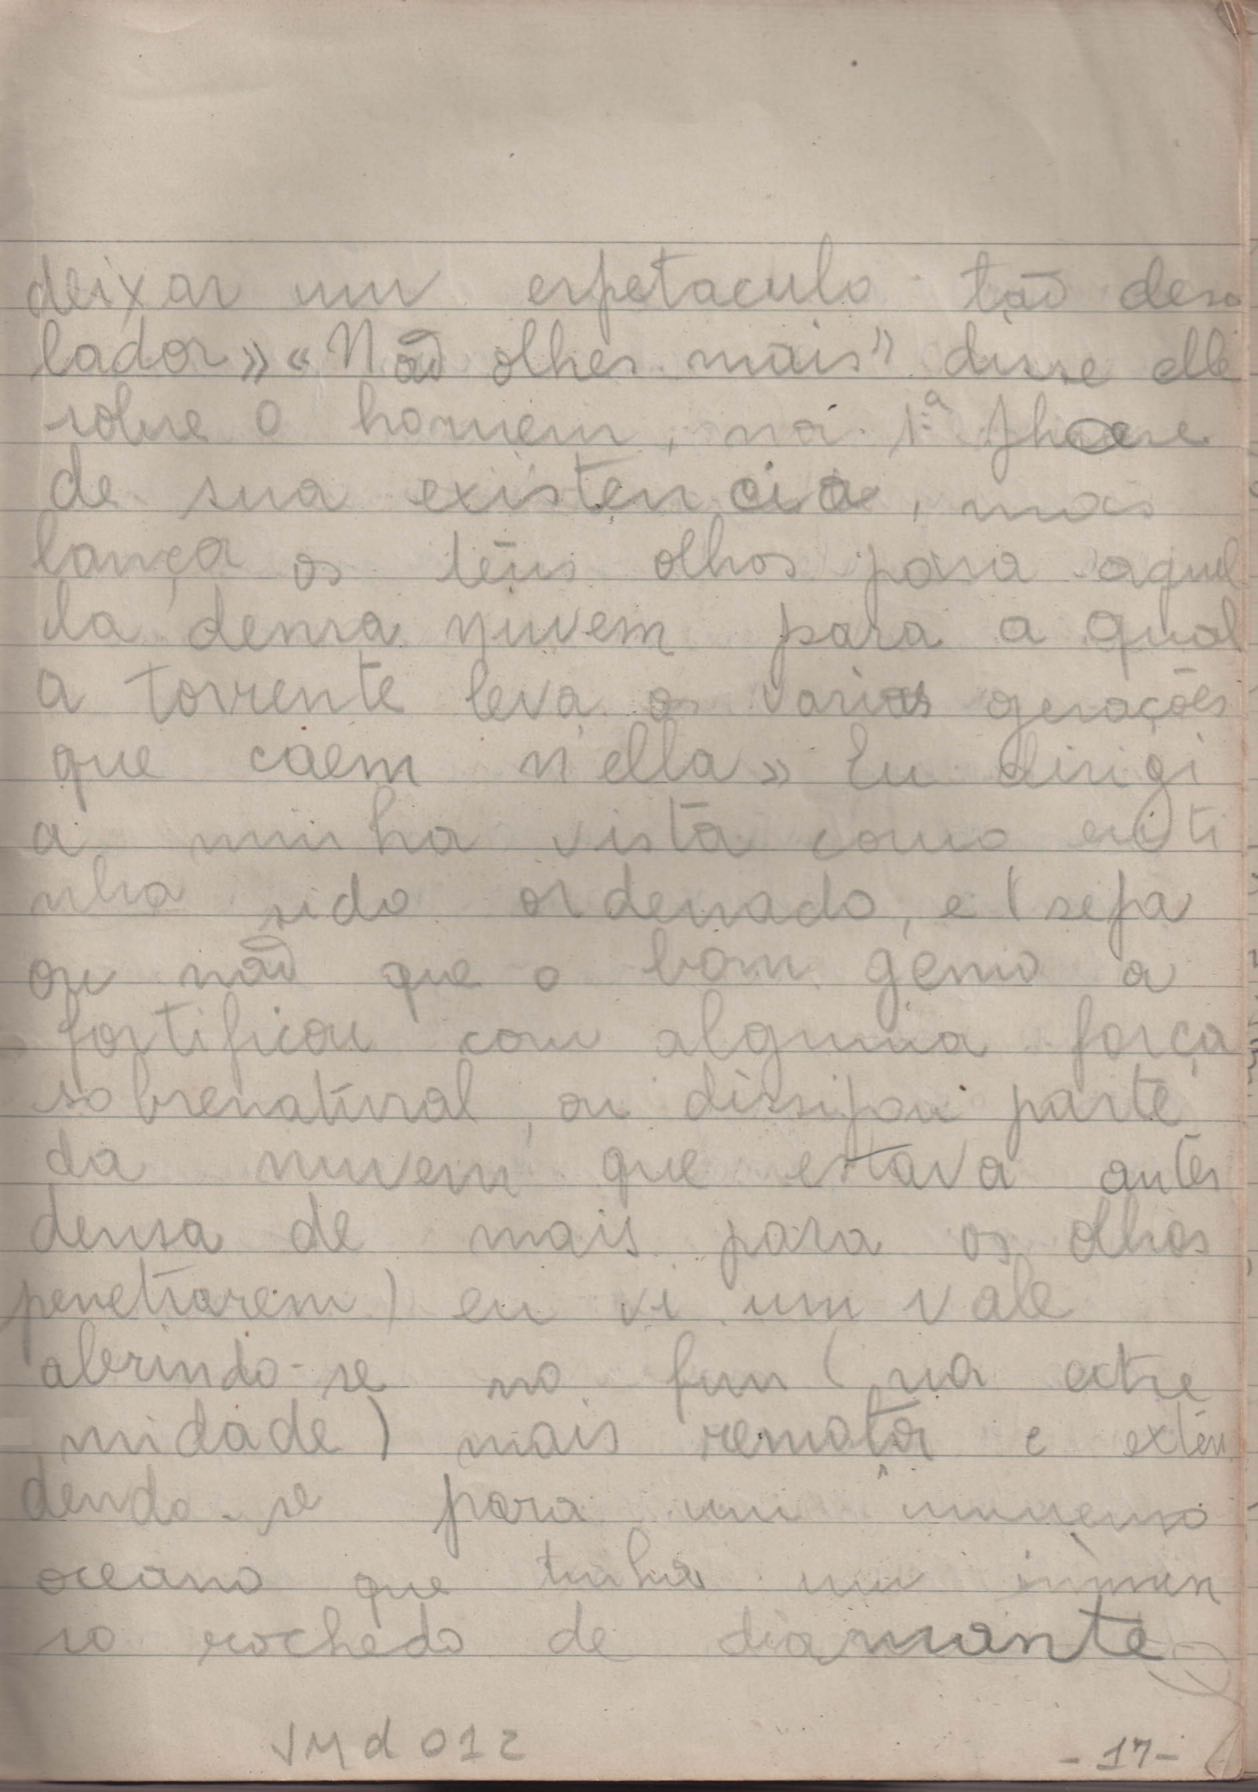 deixar um espetaculo tão deso
lador» «Não olhes mais" disse elle
sobre o homem, na 1ª phase
de sua existencia, mas
lança os teus olhos para aquel
la densa nuvem para a qual
a torrente leva as varias gerações
que caem n'ella» Eu dirigi
a minha vista como ti
nha sido ordenado, e (seja
ou não que o bom genio a
fortificou com alguma força
sobrenatural, ou dissipou parte
da nuvem que estava antes
densa de mais para os olhos
penetrarem) eu vi um vale
abrindo-se no fim (na extre
midade) mais remota e exten
dendo-se para um immenso
oceano que tinha um immen
so rochedo de diamante
JMd 012
-17-